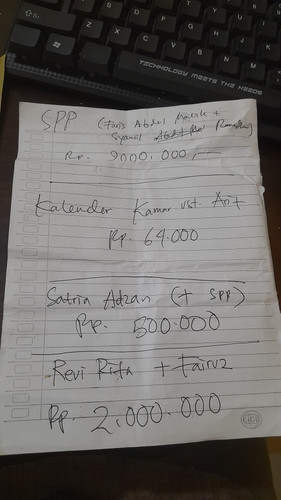 TECHNOLOGY MEETS THE NEEDS
SPP (Faris Abdul Malik +
Syamil Ramadhan)
Rp. 9000.000,—
Kalender Kamar ust. Arif
Rp. 64.000
Satria Adzan (+ SPP)
Rp. 500.000
Revi Rita + Fairuz
Rp. 2.000.000